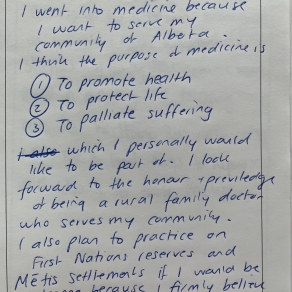 I went into medicine because
I want to serve my
community of Alberta.
I think the purpose of medicine is
① To promote health
② To protect life
③ To palliate suffering
I also which I personally would
like to be part of. I look
forward to the honour + priviledge
of being a rural family doctor
who serves my community.
I also plan to practice on
First Nations reserves and
Métis settlements if I would be
because I firmly believe